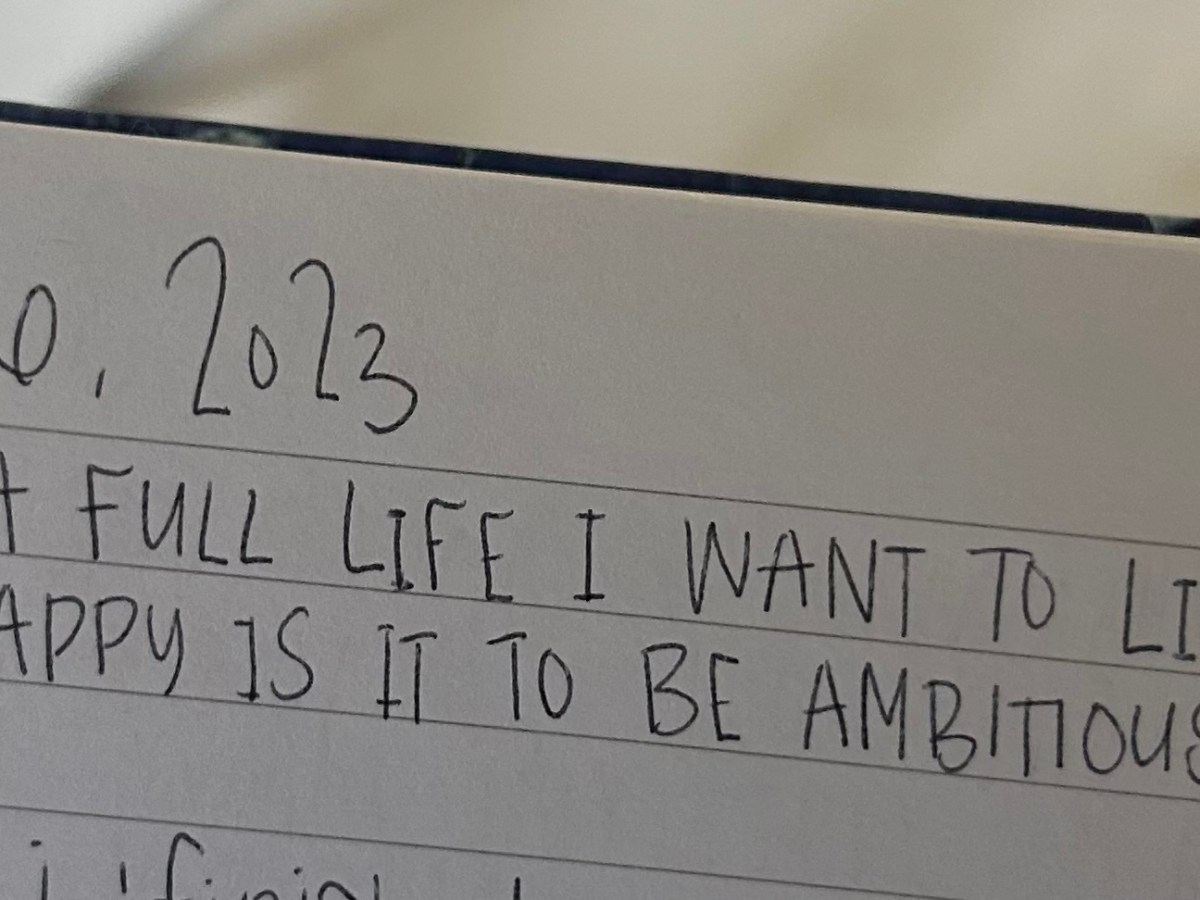 0, 2023
A FULL LIFE I WANT TO LI
APPY IS IT TO BE AMBITIOUS